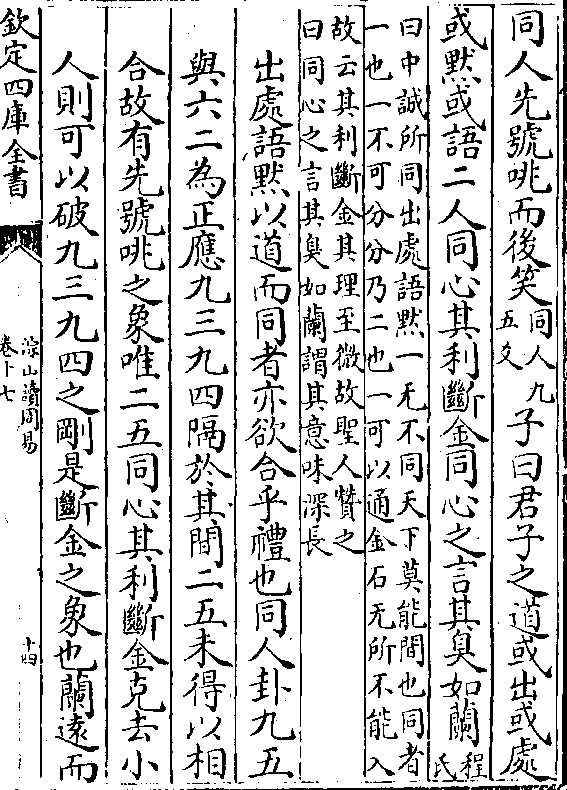 同人先號咷而後笑同人九
五爻子曰君子之道或出或處
或默或語二人同心其利斷金同心之言其臭如蘭程
氏
曰中誠所同出處語默一无不同天下莫能間也同者
一也一不可分分乃二也一可以通金石无所不能入
故云其利斷金其理至微故聖人贊之
曰同心之言其臭如蘭謂其意味深長
出處語默以道而同者亦欲合乎禮也同人卦九五
與六二為正應九三九四隔於其間二五未得以相
合故有先號咷之象唯二五同心其利斷金克去小
人則可以破九三九四之剛是斷金之象也蘭遠而
欽定四庫全書
淙山讀周易
卷十七
十四